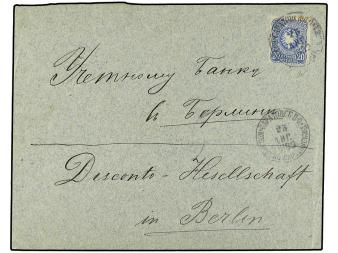 Учетному Банку
в Берлинѣ
Desconto - Hesellschaft
in Berlin
23